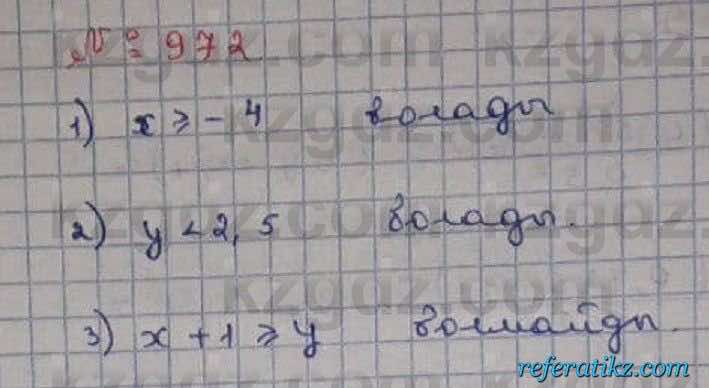 № 972
1) x ≥ -4 болады
2) y < 2,5 болады.
3) x + 1 ≥ y болмайды.
referatikz.com